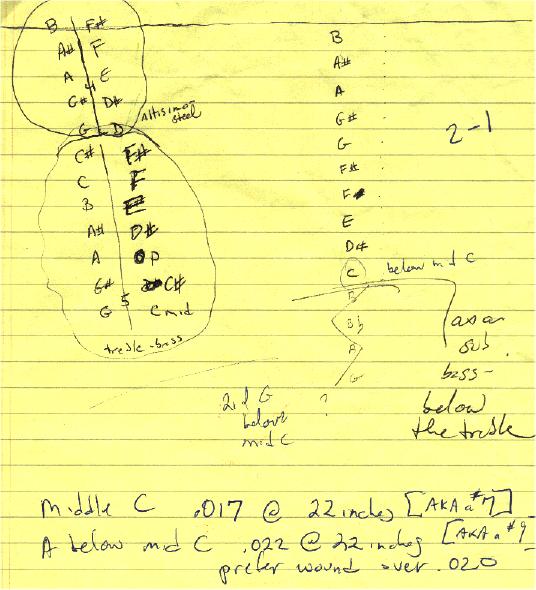 B F#
A# F
A E
4
G# D#
G D
Altissimo
steel
C# F#
C F
B E
A# D#
A D
G# C#
5
G C mid
treble-bass
B
A#
A
G#
G
F#
F
E
D#
C below mid C
B
Bb
A
G
?
2-1
as a
sub
bass-
below
the treble
2nd G
below
mid C
Middle C .017 @ 22 inches [AKA a #7]
A below mid C .022 @ 22 inches [AKA a #9
prefer wound over .020